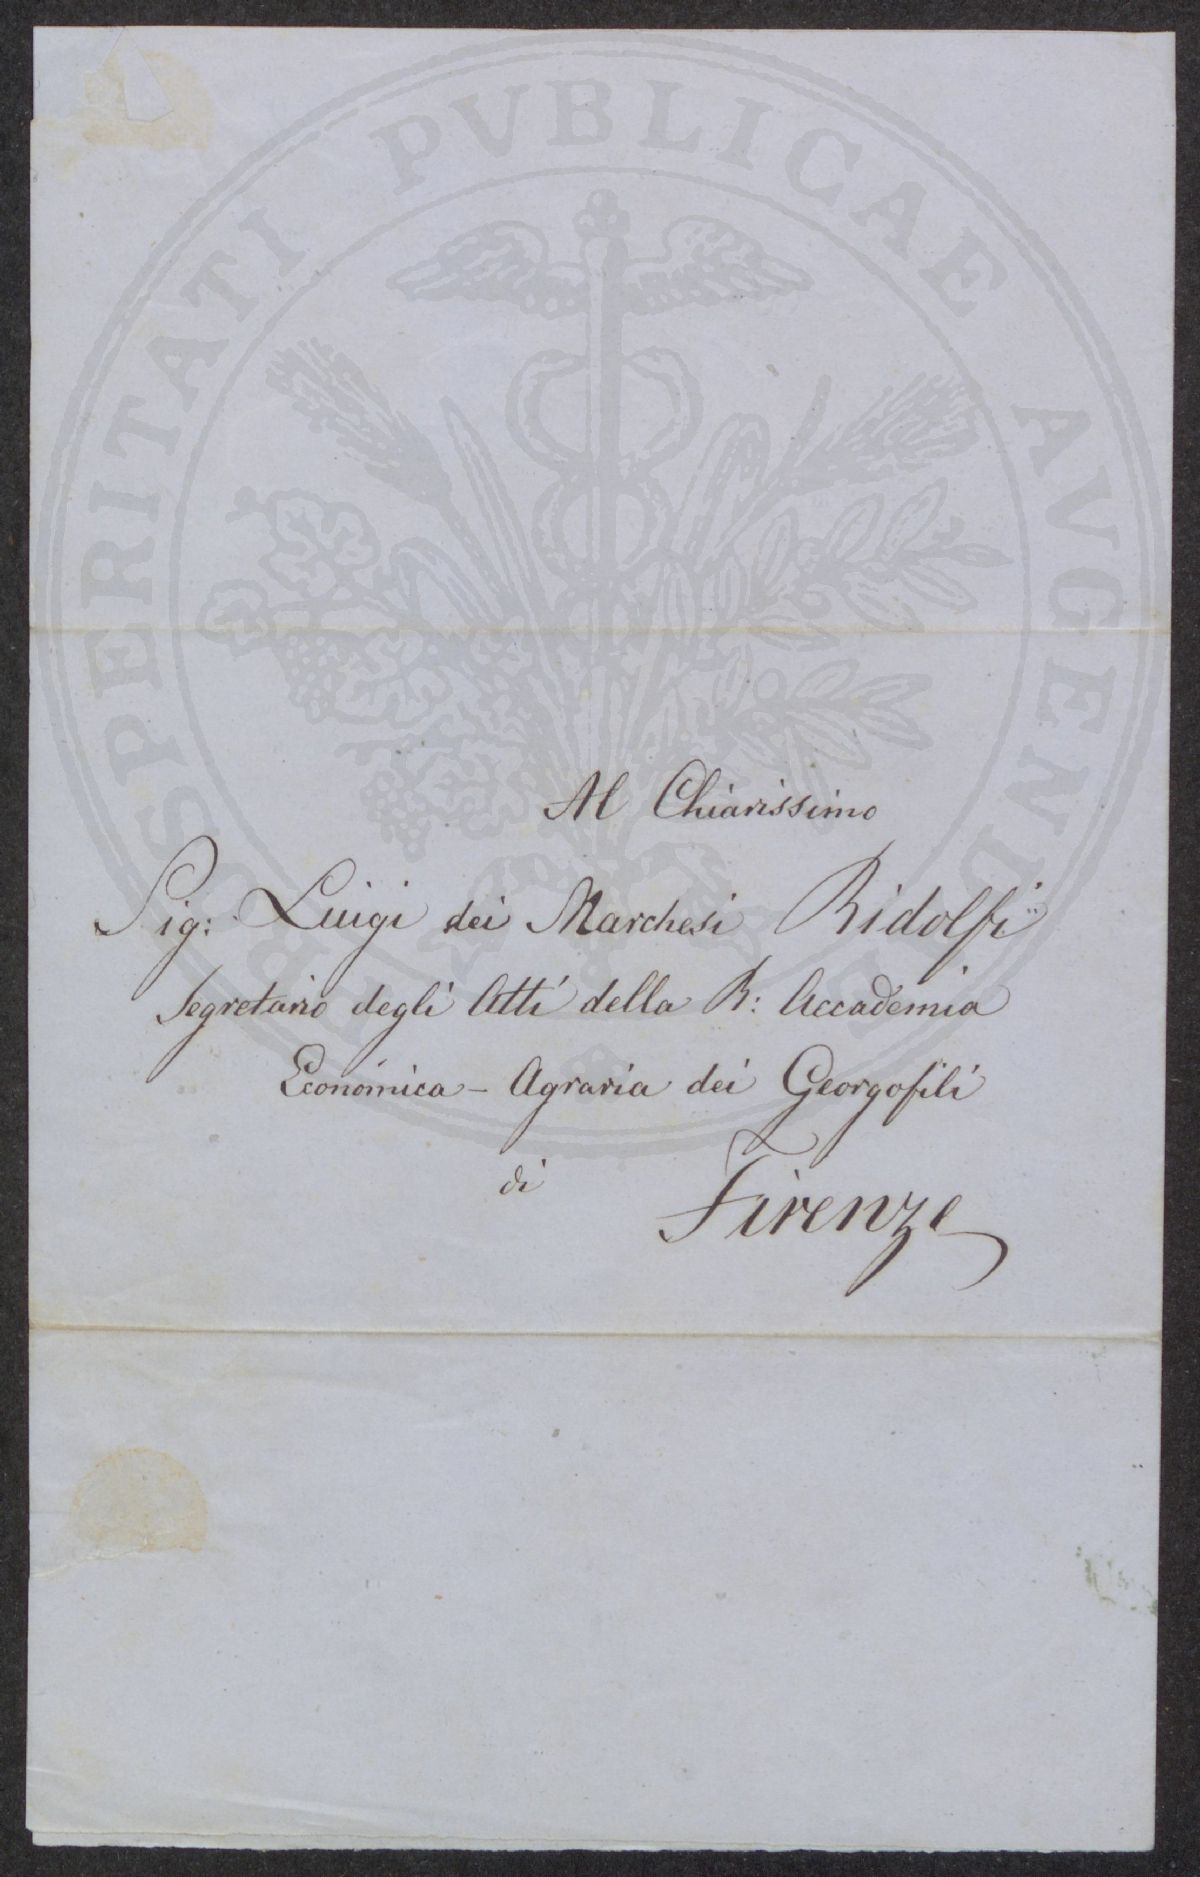 PROSPERITATI PVBLICAE AVGENDAE
Al Chiarissimo
Sig: Luigi dei Marchesi Ridolfi
Segretario degli Atti della R: Accademia
Economica - Agraria dei Georgofili
di Firenze